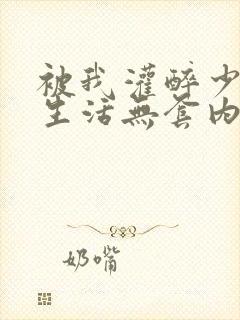 被我灌醉少
生活無套内
奶嘴